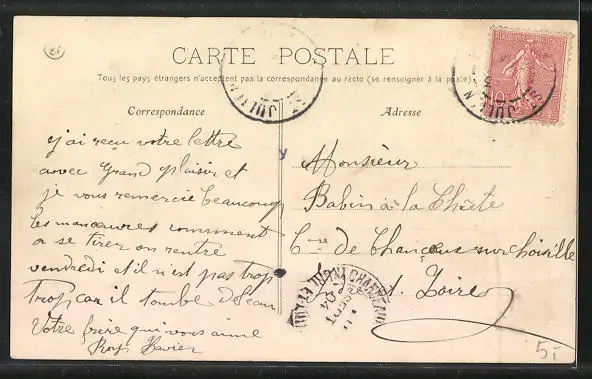 CARTE POSTALE
Tous les pays étrangers n'acceptent pas la correspondance au recto (se renseigner à la poste)
Correspondance
Adresse
j'ai reçu votre lettre
avec Grand plaisir et
je vous remercie beaucoup
les manœuvres comment
a se tirer on rentre
vendredi et il n'est pas trop
Trop car il tombe de l'eau
Votre frère qui vous aime
Xavier
Monsieur
Babin à la
Cne de Chanceaux sur choisille
Loire
REPUBLIQUE FRANÇAISE
10
SEPT
04
5-